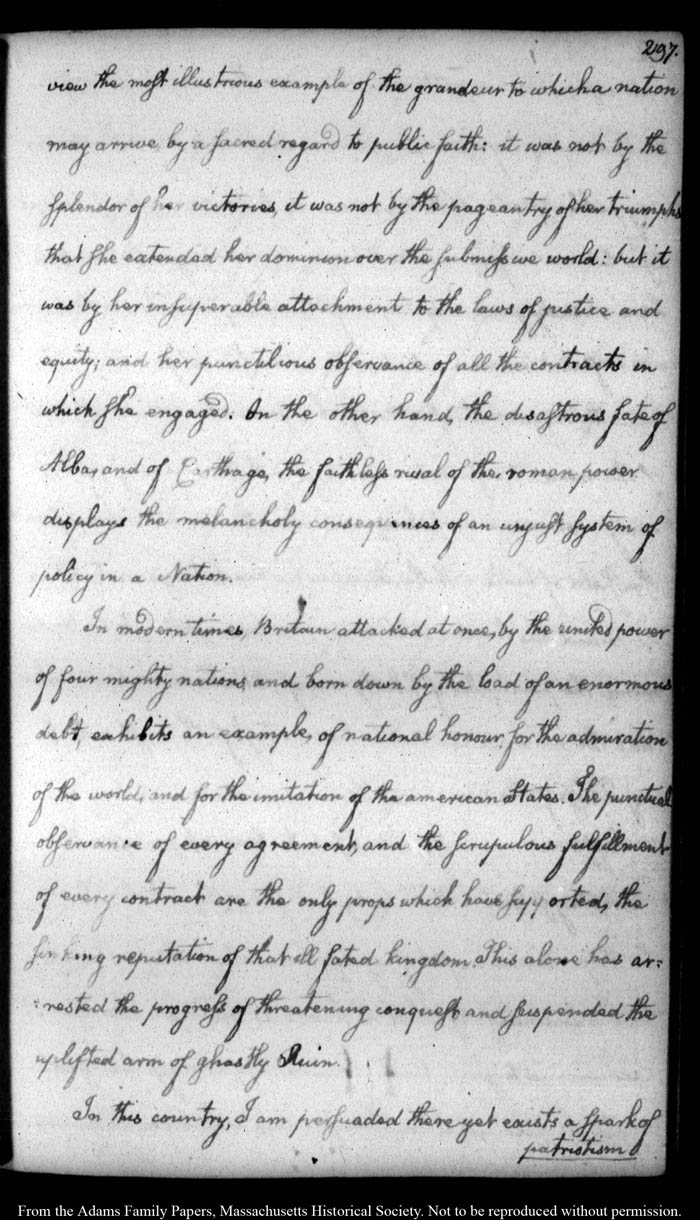 297.
view the most illustrious example of the grandeur to which a nation
may arrive, by a sacred regard to public faith: it was not by the
splendor of her victories, it was not by the pageantry of her triumphs
that she extended her dominion over the submissive world: but it
was by her insuperable attachment to the laws of justice and
equity; and her punctilious observance of all the contracts in
which she engaged. On the other hand, the disastrous fate of
Alba, and of Carthage, the faithless rival of the roman power
displays the melancholy consequences of an unjust system of
policy in a Nation.
In modern times, Britain attacked at once, by the united power
of four mighty nations, and born down by the load of an enormous
debt, exhibits an example, of national honour, for the admiration
of the world, and for the imitation of the american States. The punctual
observance of every agreement, and the scrupulous fulfillment
of every contract are the only props which have supported, the
sinking reputation of that ill fated kingdom. This alone has ar:
:rested the progress of threatening conquest, and suspended the
uplifted arm of ghastly Ruin.
In this country, I am persuaded there yet exists a spark of
patriotism
From the Adams Family Papers, Massachusetts Historical Society. Not to be reproduced without permission.